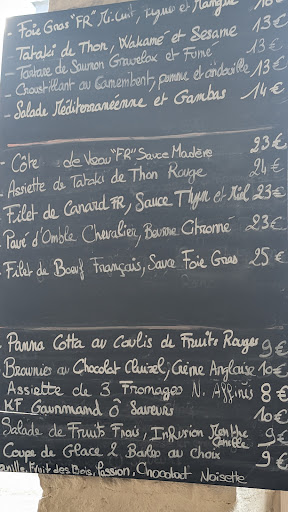 - Foie Gras "FR" Mi-Cuit, Figue et Mangue
- Tataki de Thon, Wakamé et Sesame 13€
- Tartare de Saumon Gravelax et Fumé 13€
- Choustillant au Camembert, pomme et andouille 13€
- Salade Méditerranéenne et Gambas 14€
- Côte de Veau "FR" Sauce Madère 23€
- Assiette de Tataki de Thon Rouge 24€
- Filet de Canard FR, Sauce Thym et Miel 23€
- Pavé d'Omble Chevalier, Beurre Citronné 23€
- Filet de Bœuf Français, Sauce Foie Gras 25€
- Panna Cotta au Coulis de Fruits Rouges 9€
Brownies au Chocolat Cluizel, Crème Anglaise 10€
Assiette de 3 Fromages N. Affinés 8€
KF Gourmand Ô Saveurs 10€
Salade de Fruits Frais, Infusion Menthe 9€
Coupe de Glace 2 Boules au choix 9€
Vanille, Fruit des Bois, Passion, Chocolat Noisette